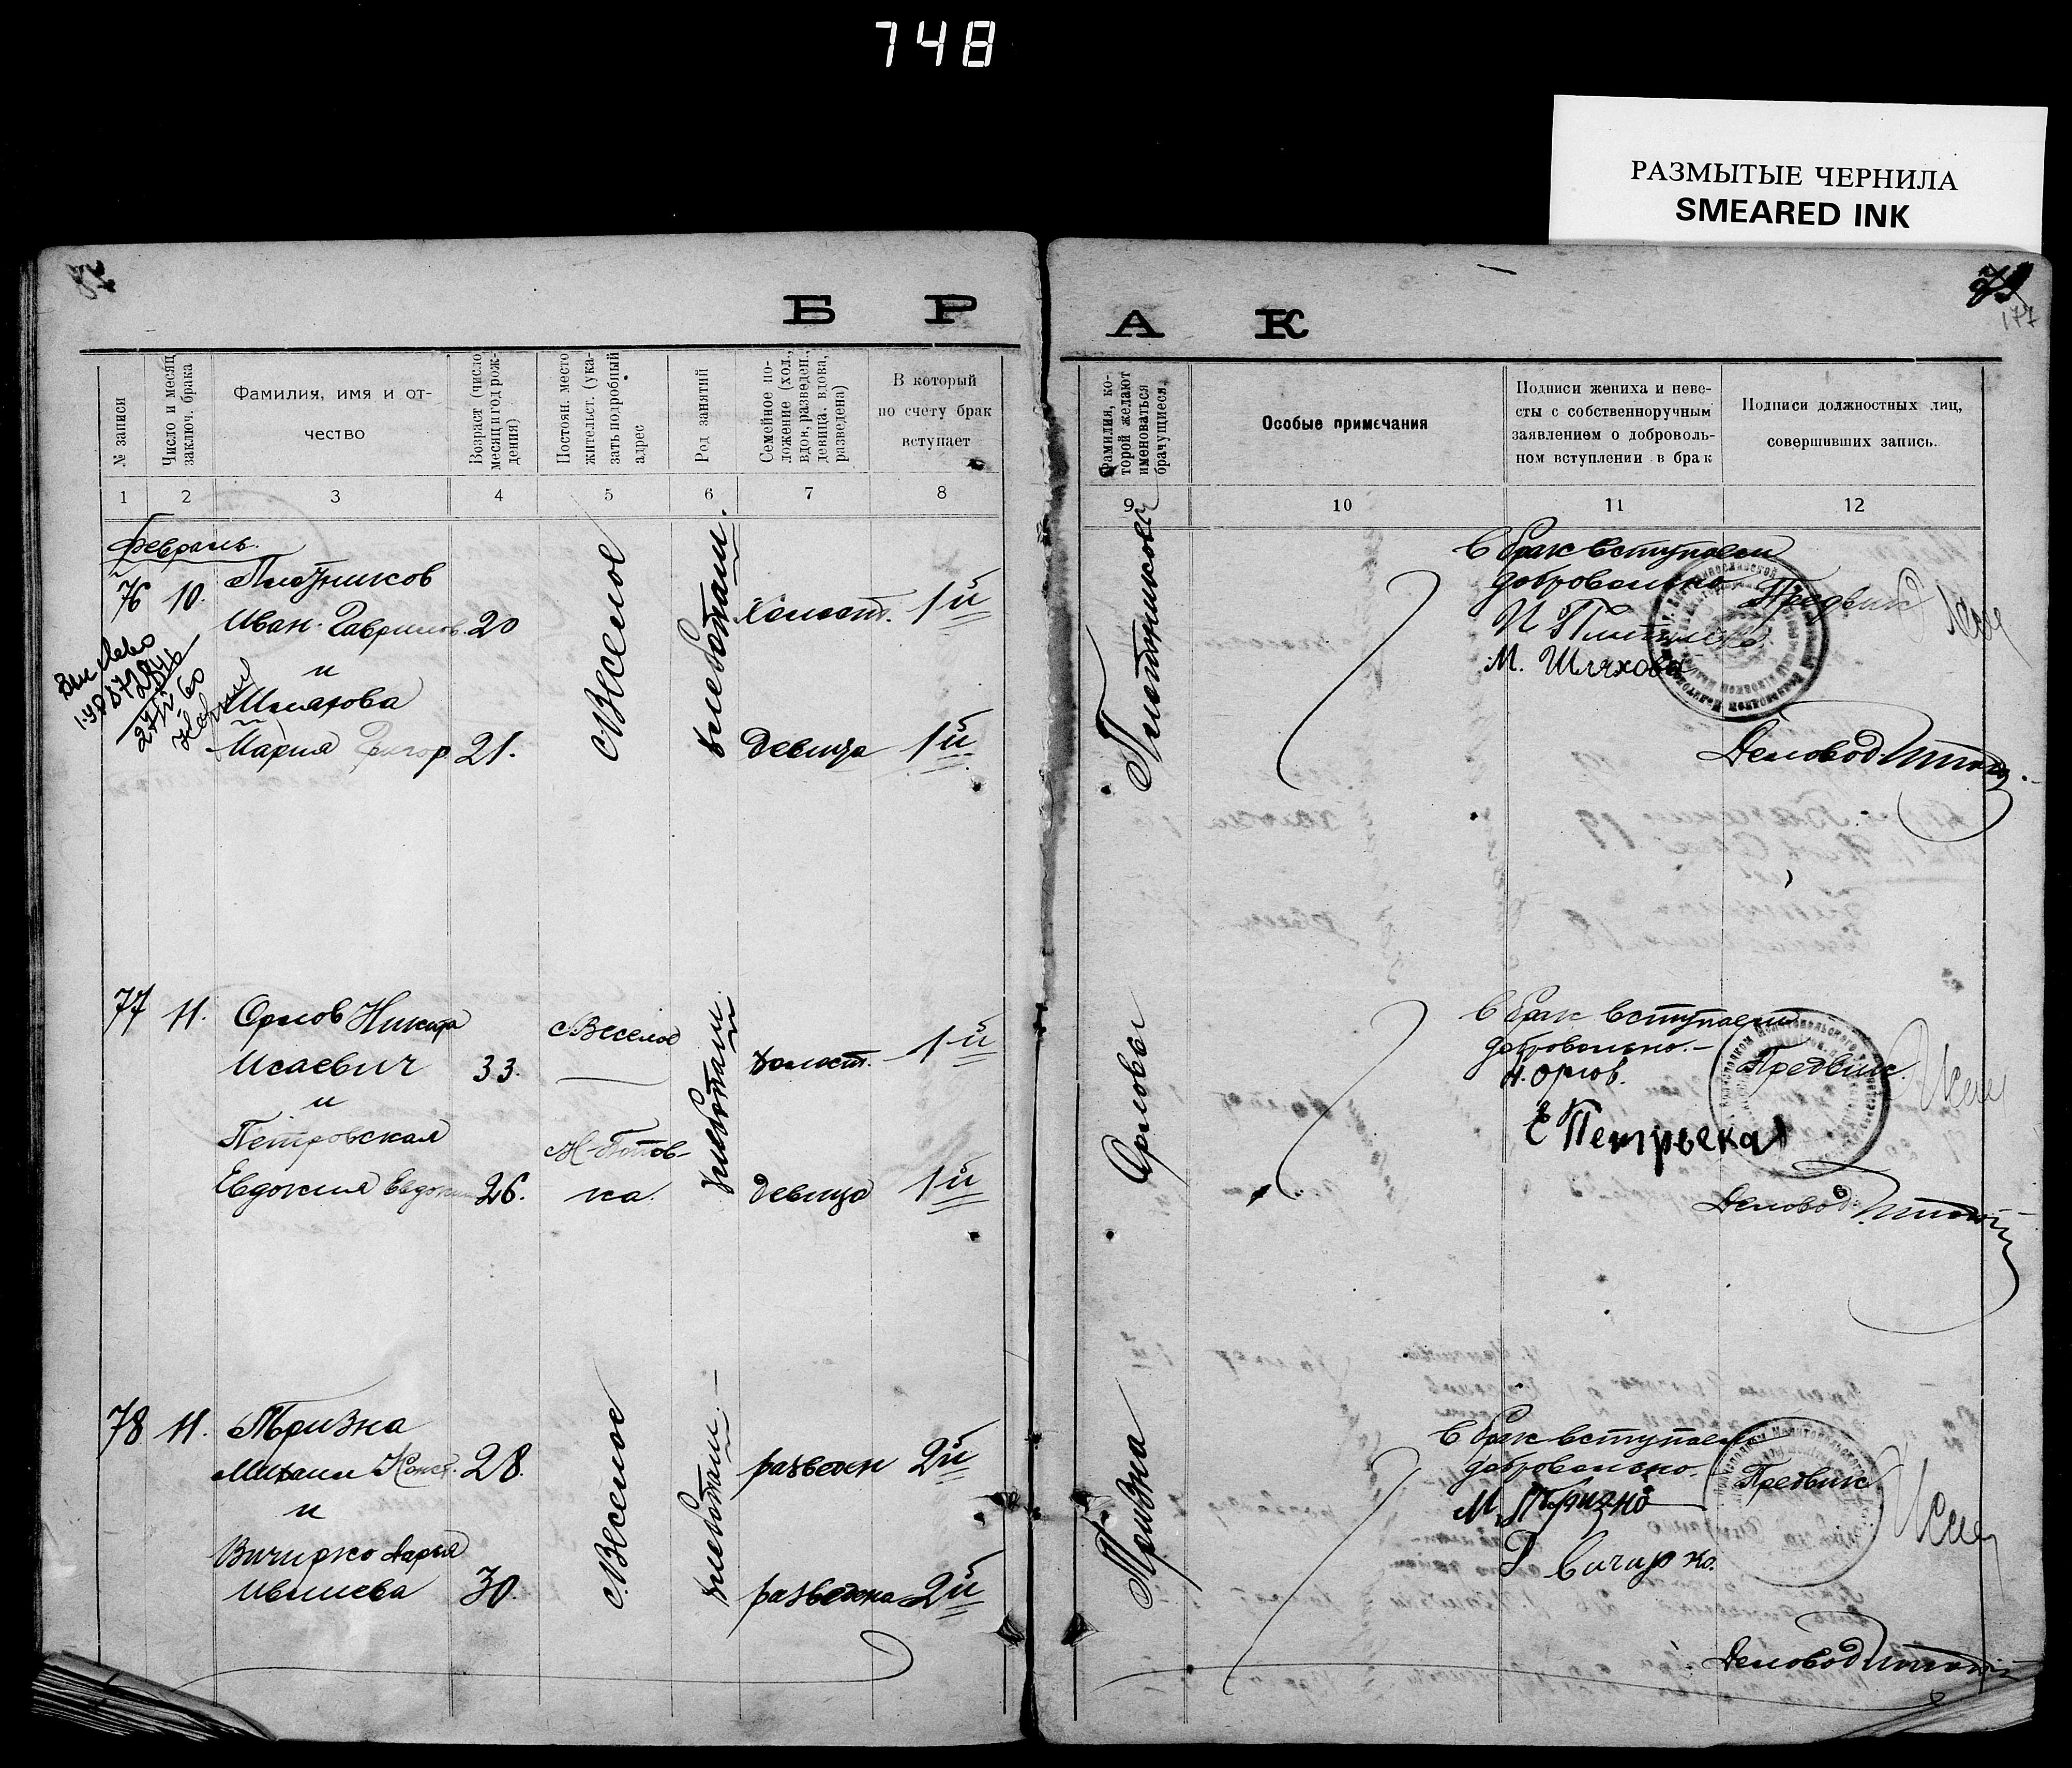 748
РАЗМЫТЫЕ ЧЕРНИЛА
SMEARED INK
Б Р А К
177
№ записи
Число и месяц
заключ. брака
Фамилия, имя и от-
чество
Возраст (число
месяц и год рож-
дения)
Постоян. место
жительст. (ука-
зать подробный
адрес
Род занятий
Семейное по-
ложение (хол.,
вдов, разведен.,
девица, вдова,
разведена)
В который
по счету брак
вступает
Фамилия, ко-
торой желают
именоваться
брачущиеся
Особые примечания
Подписи жениха и неве-
сты с собственноручным
заявлением о доброволь-
ном вступлении в брак
Подписи должностных лиц,
совершивших запись.
1 2 3 4 5 6 7 8 9 10 11 12
февраль.
76 10. Плотников
Иван Гаврилов. 20
и
Шляхова
Мария Григор. 21.
с Веселое
хлебопаш.
Холост. 1й
девица 1й
Плотниковы
В брак вступаем
добровольно
М. Шляхова
Предвик
Деловод
77 11. Орлов Никита
Исаевич 33.
и
Петровская
Евдокия 26.
с Веселое
Н-Попов-
ка.
хлебопаш.
холост. 1й
девица 1й
Орловы
В брак вступаем
добровольно.
Н. Орлов.
Е Петрьвска
Предвик.
Деловод
78 11. Тризна
Михаил Конст. 28.
и
Вичирко Дарья
30.
с. Веселое
хлебопаш.
разведен 2й
разведена 2й
Тризна
В брак вступаем
добровольно.
М. Тризна
Вичирко.
Предвик
Деловод